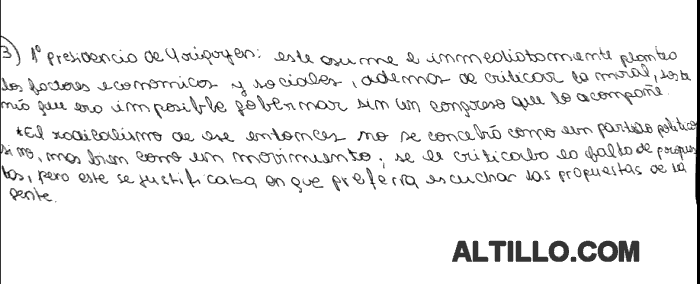 3) 1° presidencia de Yrigoyen: este asume e inmediatamente planteo
los factores economicos y sociales, ademas de criticar la moral, sos te
nia que era imposible gobernar sin un congreso que lo acompañe.
*El radicalismo de ese entonces no se concebió como un partido politico
si no, mas bien como un movimiento, se le criticaba la falta de propues
tas, pero este se justificaba en que preferia escuchar las propuestas de la
gente.
ALTILLO.COM